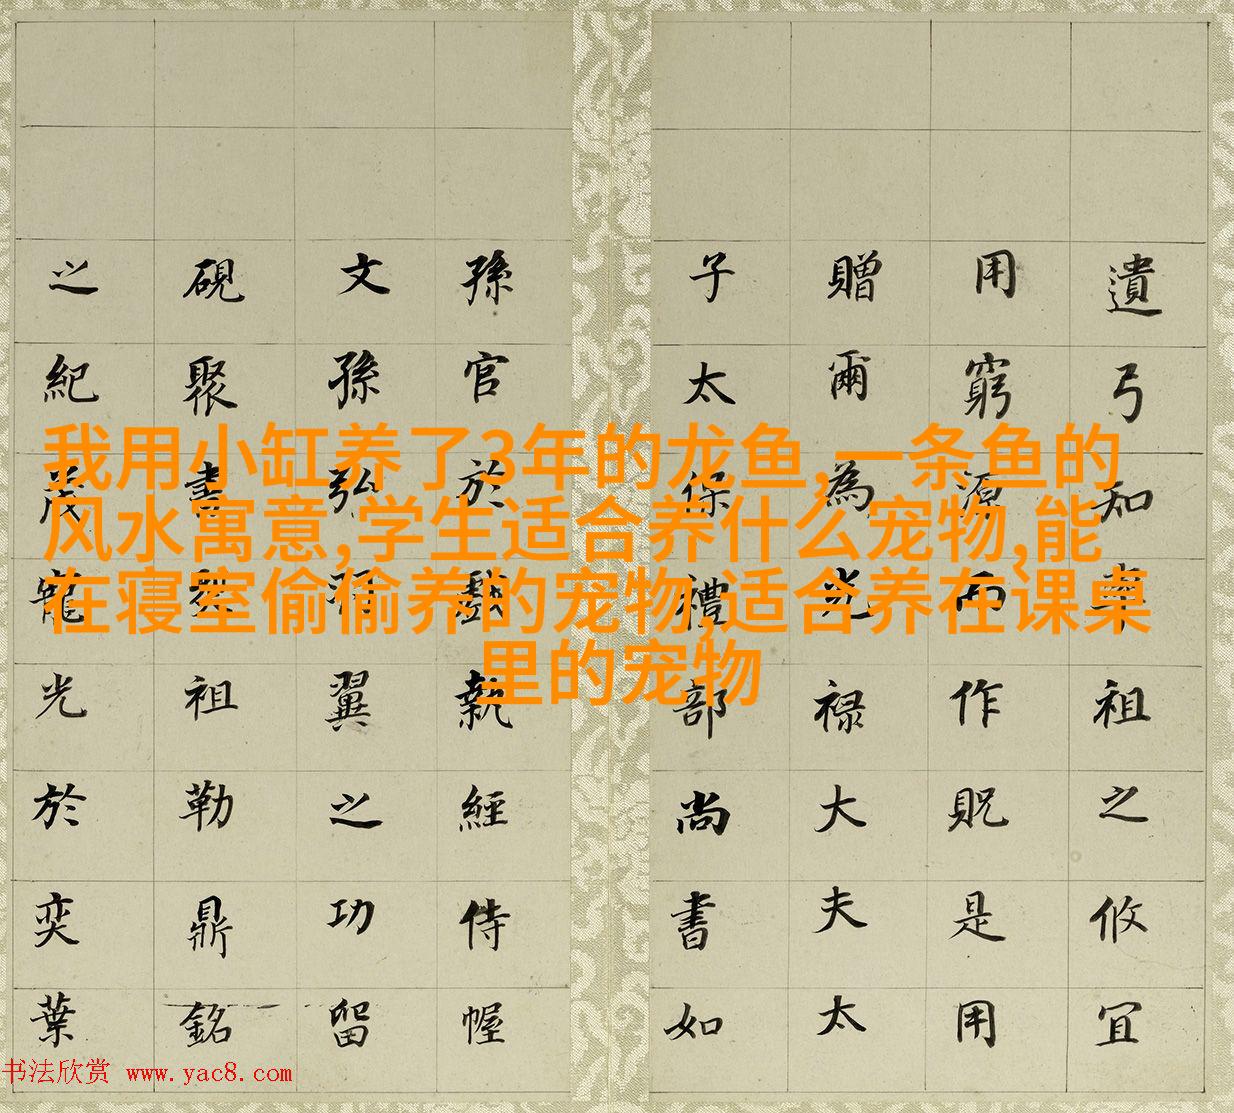 遺弓知祖之攸宜
用窮源而作貺是用
贈爾為光祿大夫太
子太保禮部尚書如
孫官於戲執經侍幄
文孫弘翼之功留
硯聚書祖勒鼎銘
之紀茂寵光於奕葉
我用小缸养了3年的龙鱼,一条鱼的
风水寓意,学生适合养什么宠物,能
在寝室偷偷养的宠物,适合养在课桌
里的宠物
书法欣赏 www.yac8.com